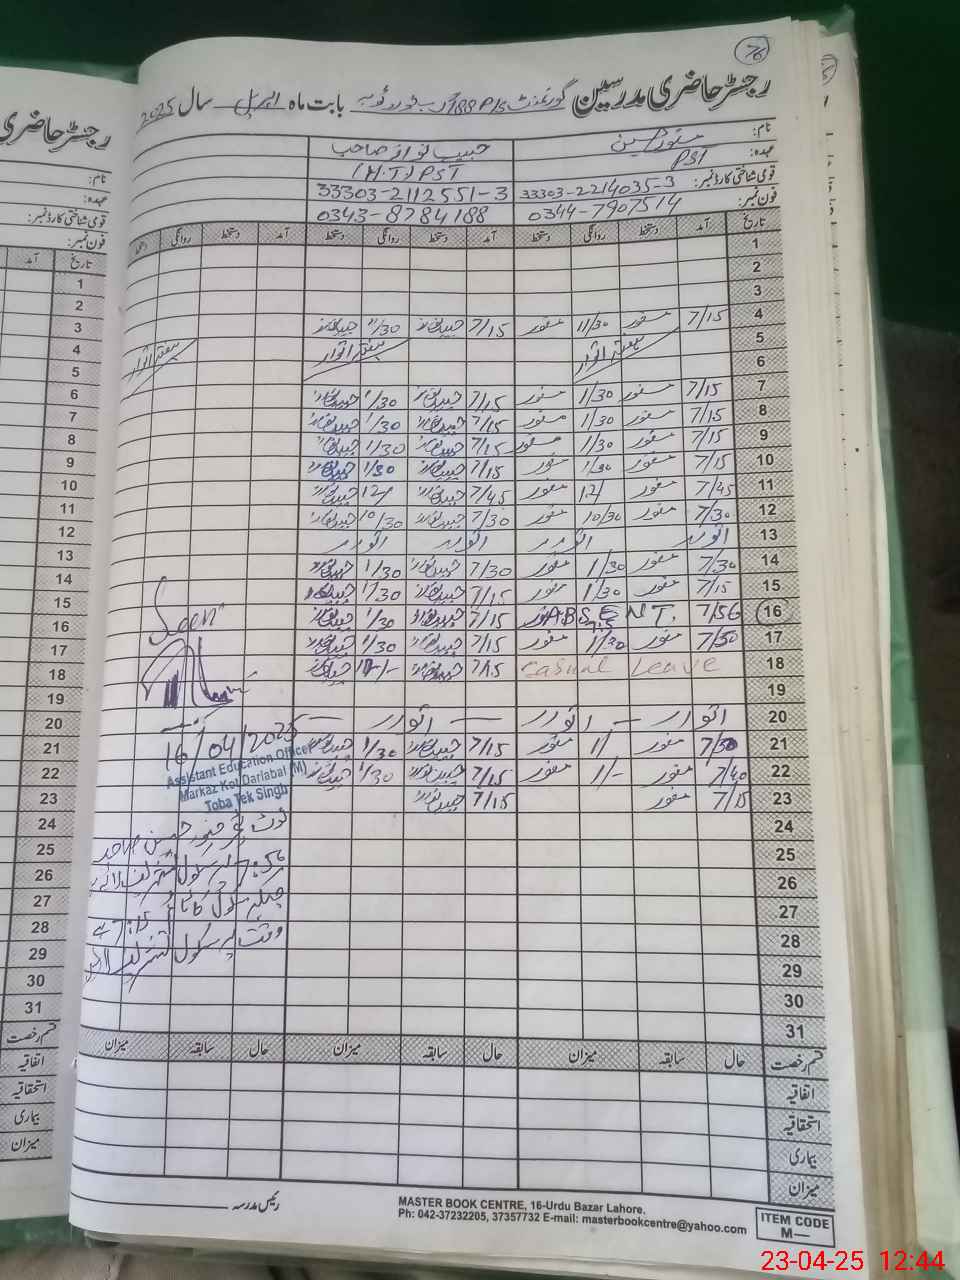 76
رجسٹر حاضری مدرسین گورنمنٹ P/S 188 بابت ماہ اپریل سال 2025
نام: منور حسین حبیب نواز صاحب
عہدہ: PST (H.T) PST
قومی شناختی کارڈ نمبر: 33303-2214035-3 33303-2112551-3
فون نمبر: 0344-7907514 0343-8784188
تاریخ آمد دستخط روانگی دستخط آمد دستخط روانگی دستخط آمد دستخط روانگی دستخط
1
2
3
4 7/15 منور 11/30 منور 7/15 حبیب نواز 11/30 حبیب نواز
5 ہفتہ اتوار ہفتہ اتوار ہفتہ اتوار
6
7 7/15 منور 1/30 منور 7/15 حبیب نواز 1/30 حبیب نواز
8 7/15 منور 1/30 منور 7/15 حبیب نواز 1/30 حبیب نواز
9 7/15 منور 1/30 منور 7/15 حبیب نواز 1/30 حبیب نواز
10 7/15 منور 1/30 منور 7/15 حبیب نواز 1/30 حبیب نواز
11 7/45 منور 12/ منور 7/45 حبیب نواز 12/ حبیب نواز
12 7/30 منور 10/30 منور 7/30 حبیب نواز 10/30 حبیب نواز
13 اتوار اتوار اتوار اتوار
14 7/30 منور 1/30 منور 7/30 حبیب نواز 1/30 حبیب نواز
15 7/15 منور 1/30 منور 7/15 حبیب نواز 1/30 حبیب نواز
16 7/56 A.B.S.E N T. 7/15 حبیب نواز 1/30 حبیب نواز
17 7/30 منور 1/30 منور 7/15 حبیب نواز 1/30 حبیب نواز
18 Casual Leave 7/15 حبیب نواز حبیب نواز
19
20 اتوار اتوار اتوار
21 7/30 منور 1/ منور 7/15 حبیب نواز 1/30 حبیب نواز
22 7/40 منور 1/- منور 7/15 حبیب نواز 1/30 حبیب نواز
23 7/15 منور 7/15 حبیب نواز
24
25
26
27
28
29
30
31
Seen
16/04/2025
Assistant Education Officer
Markaz Kot Dariabal (M)
Toba Tek Singh
نوٹ منور حسین صاحب
7:56 پر سکول تشریف لائے
جبکہ سکول ٹائم 7:15 ہے
وقت پر سکول تشریف لائیں
قسم رخصت حال سابقہ میزان حال سابقہ میزان حال سابقہ میزان
اتفاقیہ
استحقاقیہ
بیماری
میزان
رئیس مدرسہ
MASTER BOOK CENTRE, 16-Urdu Bazar Lahore.
Ph: 042-37232205, 37357732 E-mail: masterbookcentre@yahoo.com
ITEM CODE
M—
رجسٹر حاضری
نام:
عہدہ:
قومی شناختی کارڈ نمبر:
فون نمبر:
تاریخ آمد
1
2
3
4
5
6
7
8
9
10
11
12
13
14
15
16
17
18
19
20
21
22
23
24
25
26
27
28
29
30
31
قسم رخصت
اتفاقیہ
استحقاقیہ
بیماری
میزان
23-04-25 12:44